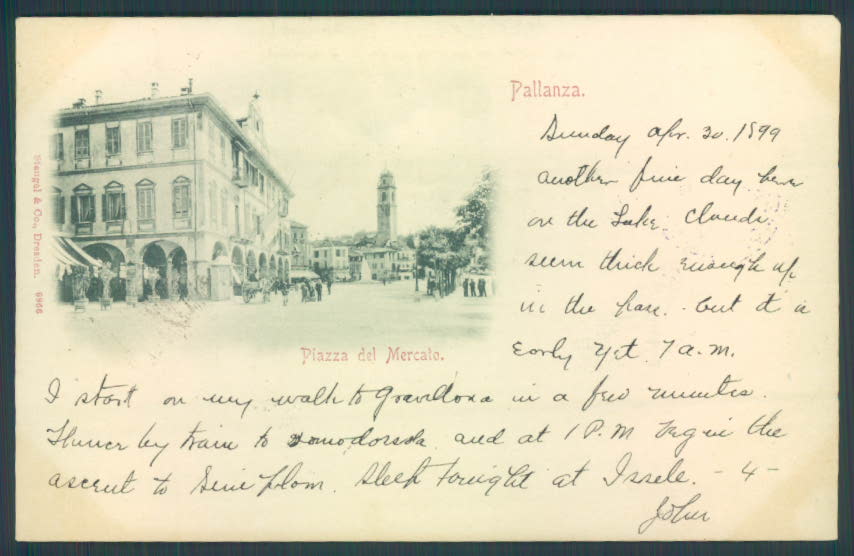 Pallanza.
Sunday Apr. 30. 1899
another fine day here
on the Lake. Clouds
seem thick enough up
in the pass. but it is
Early yet. 7 a.m.
Piazza del Mercato.
I start on my walk to Gravellona in a few minutes.
Thence by train to Domodossola. and at 1 P.M begin the
ascent to Simplom. Sleep tonight at Isselle. - 4 -
John
Stengel & Co., Dresden. 6966